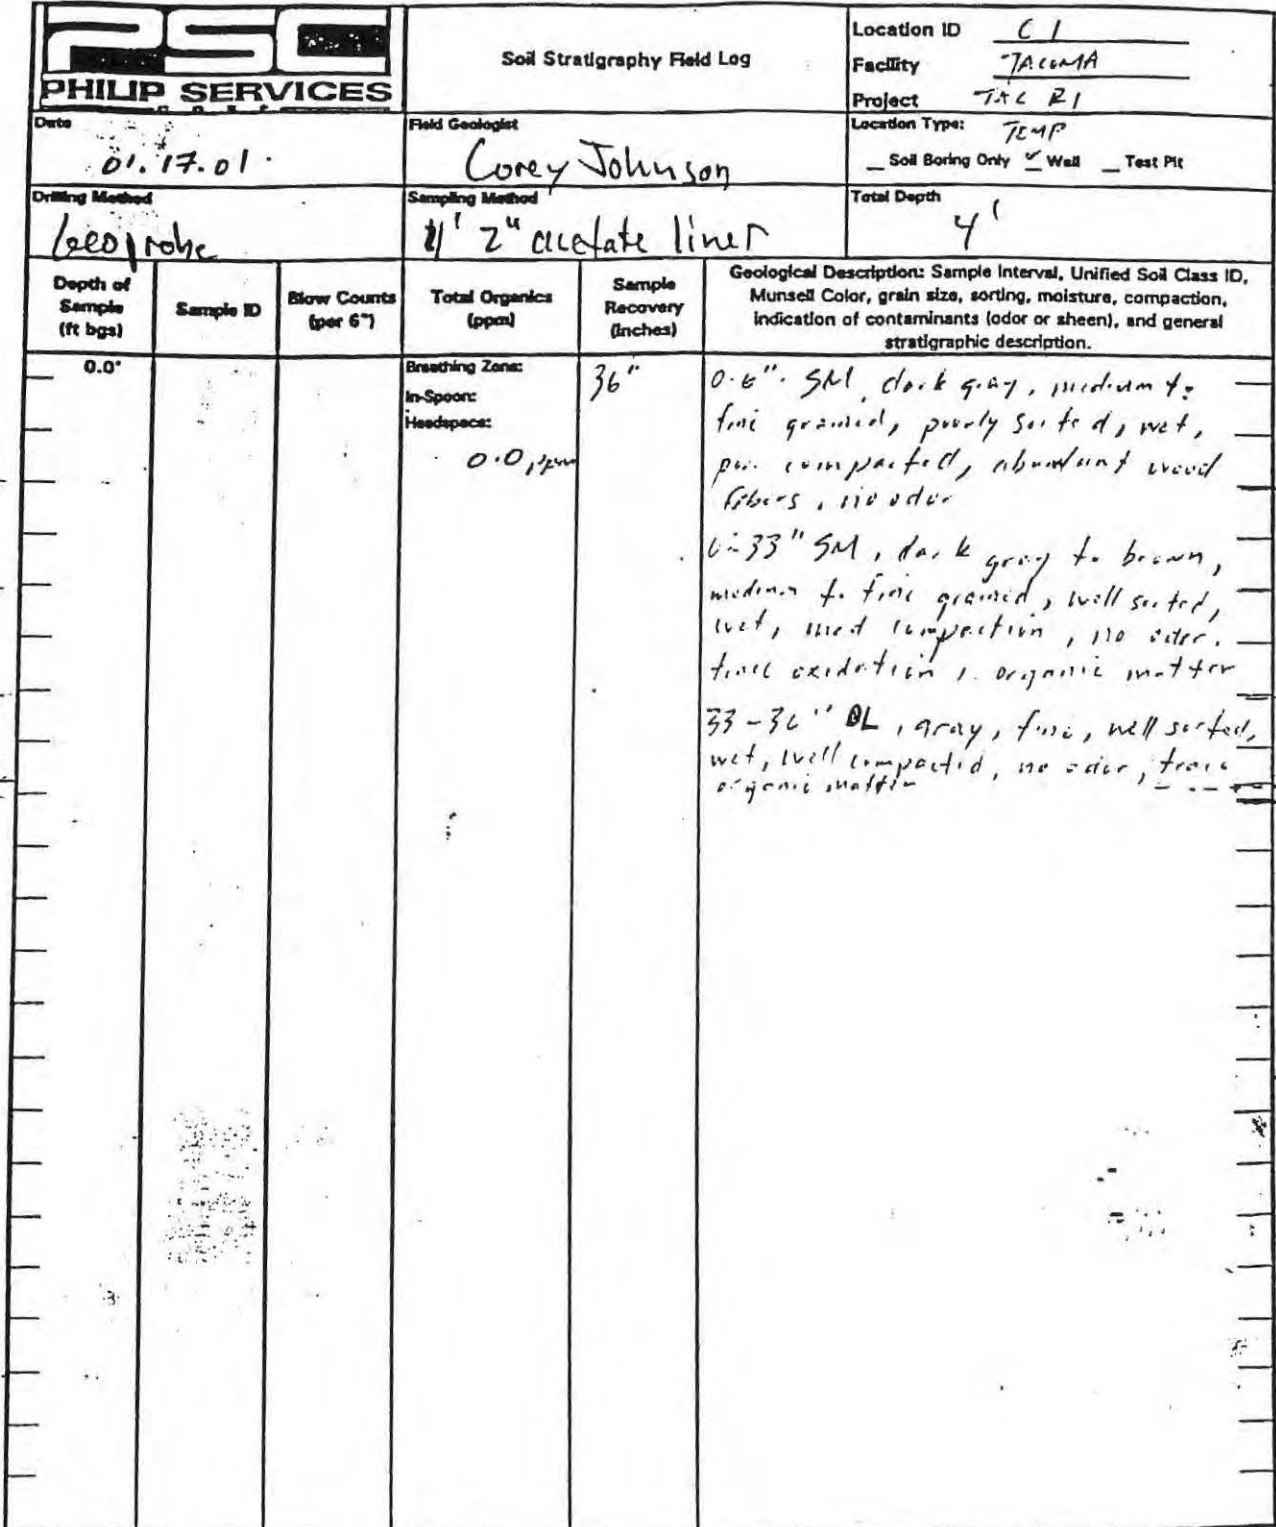 PSC
PHILIP SERVICES
CORP
Soil Stratigraphy Field Log
Location ID C1
Facility TACOMA
Project TAC RI
Date
01.17.01
Field Geologist
Corey Johnson
Location Type: TEMP
_ Soil Boring Only ✓ Well _ Test Pit
Drilling Method
Geoprobe
Sampling Method
4' 2" acetate liner
Total Depth
4'
Depth of
Sample
(ft bgs)
Sample ID
Blow Counts
(per 6")
Total Organics
(ppm)
Sample
Recovery
(inches)
Geological Description: Sample Interval, Unified Soil Class ID,
Munsell Color, grain size, sorting, moisture, compaction,
indication of contaminants (odor or sheen), and general
stratigraphic description.
0.0'
Breathing Zone:
In-Spoon:
Headspace:
0.0 ppm
36"
0-6". SM, dark gray, medium to
fine grained, poorly sorted, wet,
compacted, abundant wood
fibers, no odor
6-33" SM, dark gray to brown,
medium to fine grained, well sorted,
wet, med compaction, no odor.
trace oxidation organic matter
33-36" OL, gray, fine, well sorted,
wet, well compacted, no odor, trace
organic matter